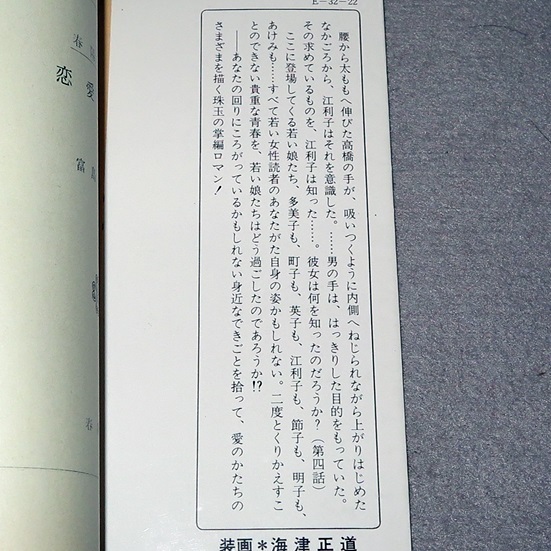 E-32-22
腰から太ももへ伸びた高橋の手が、吸いつくように内側へねじられながら上がりはじめた
なかごろから、江利子はそれを意識した。……男の手は、はっきりした目的をもっていた。
その求めているものを、江利子は知った……。彼女は何を知ったのだろうか?(第四話)
ここに登場してくる若い娘たち、多美子も、町子も、英子も、江利子も、節子も、明子も、
あけみも……すべて若い女性読者のあなたがた自身の姿かもしれない。二度とくりかえすこ
とのできない貴重な青春を、若い娘たちはどう過ごしたのであろうか!?
――あなたの回りにころがっているかもしれない身近なできごとを拾って、愛のかたちの
さまざまを描く珠玉の掌編ロマン!
装画*海津正道
春
恋愛
富島
春